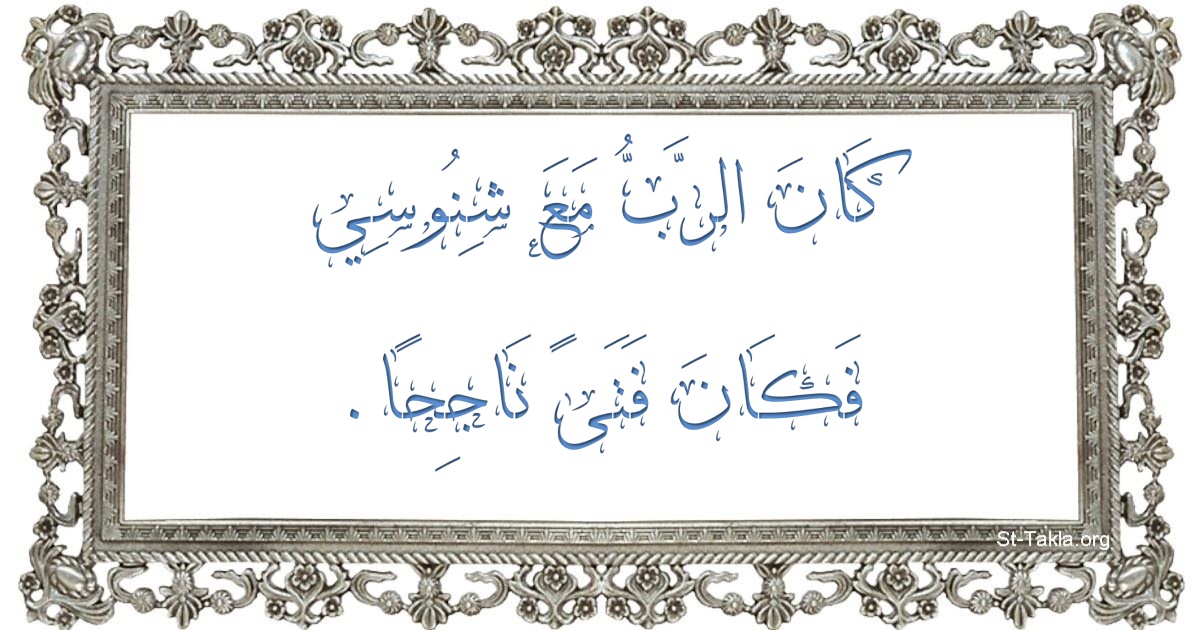 كَانَ الرَّبُّ مَعَ شِنُوسِي
فَكَانَ فَتَىً نَاجِحًا .
St-Takla.org